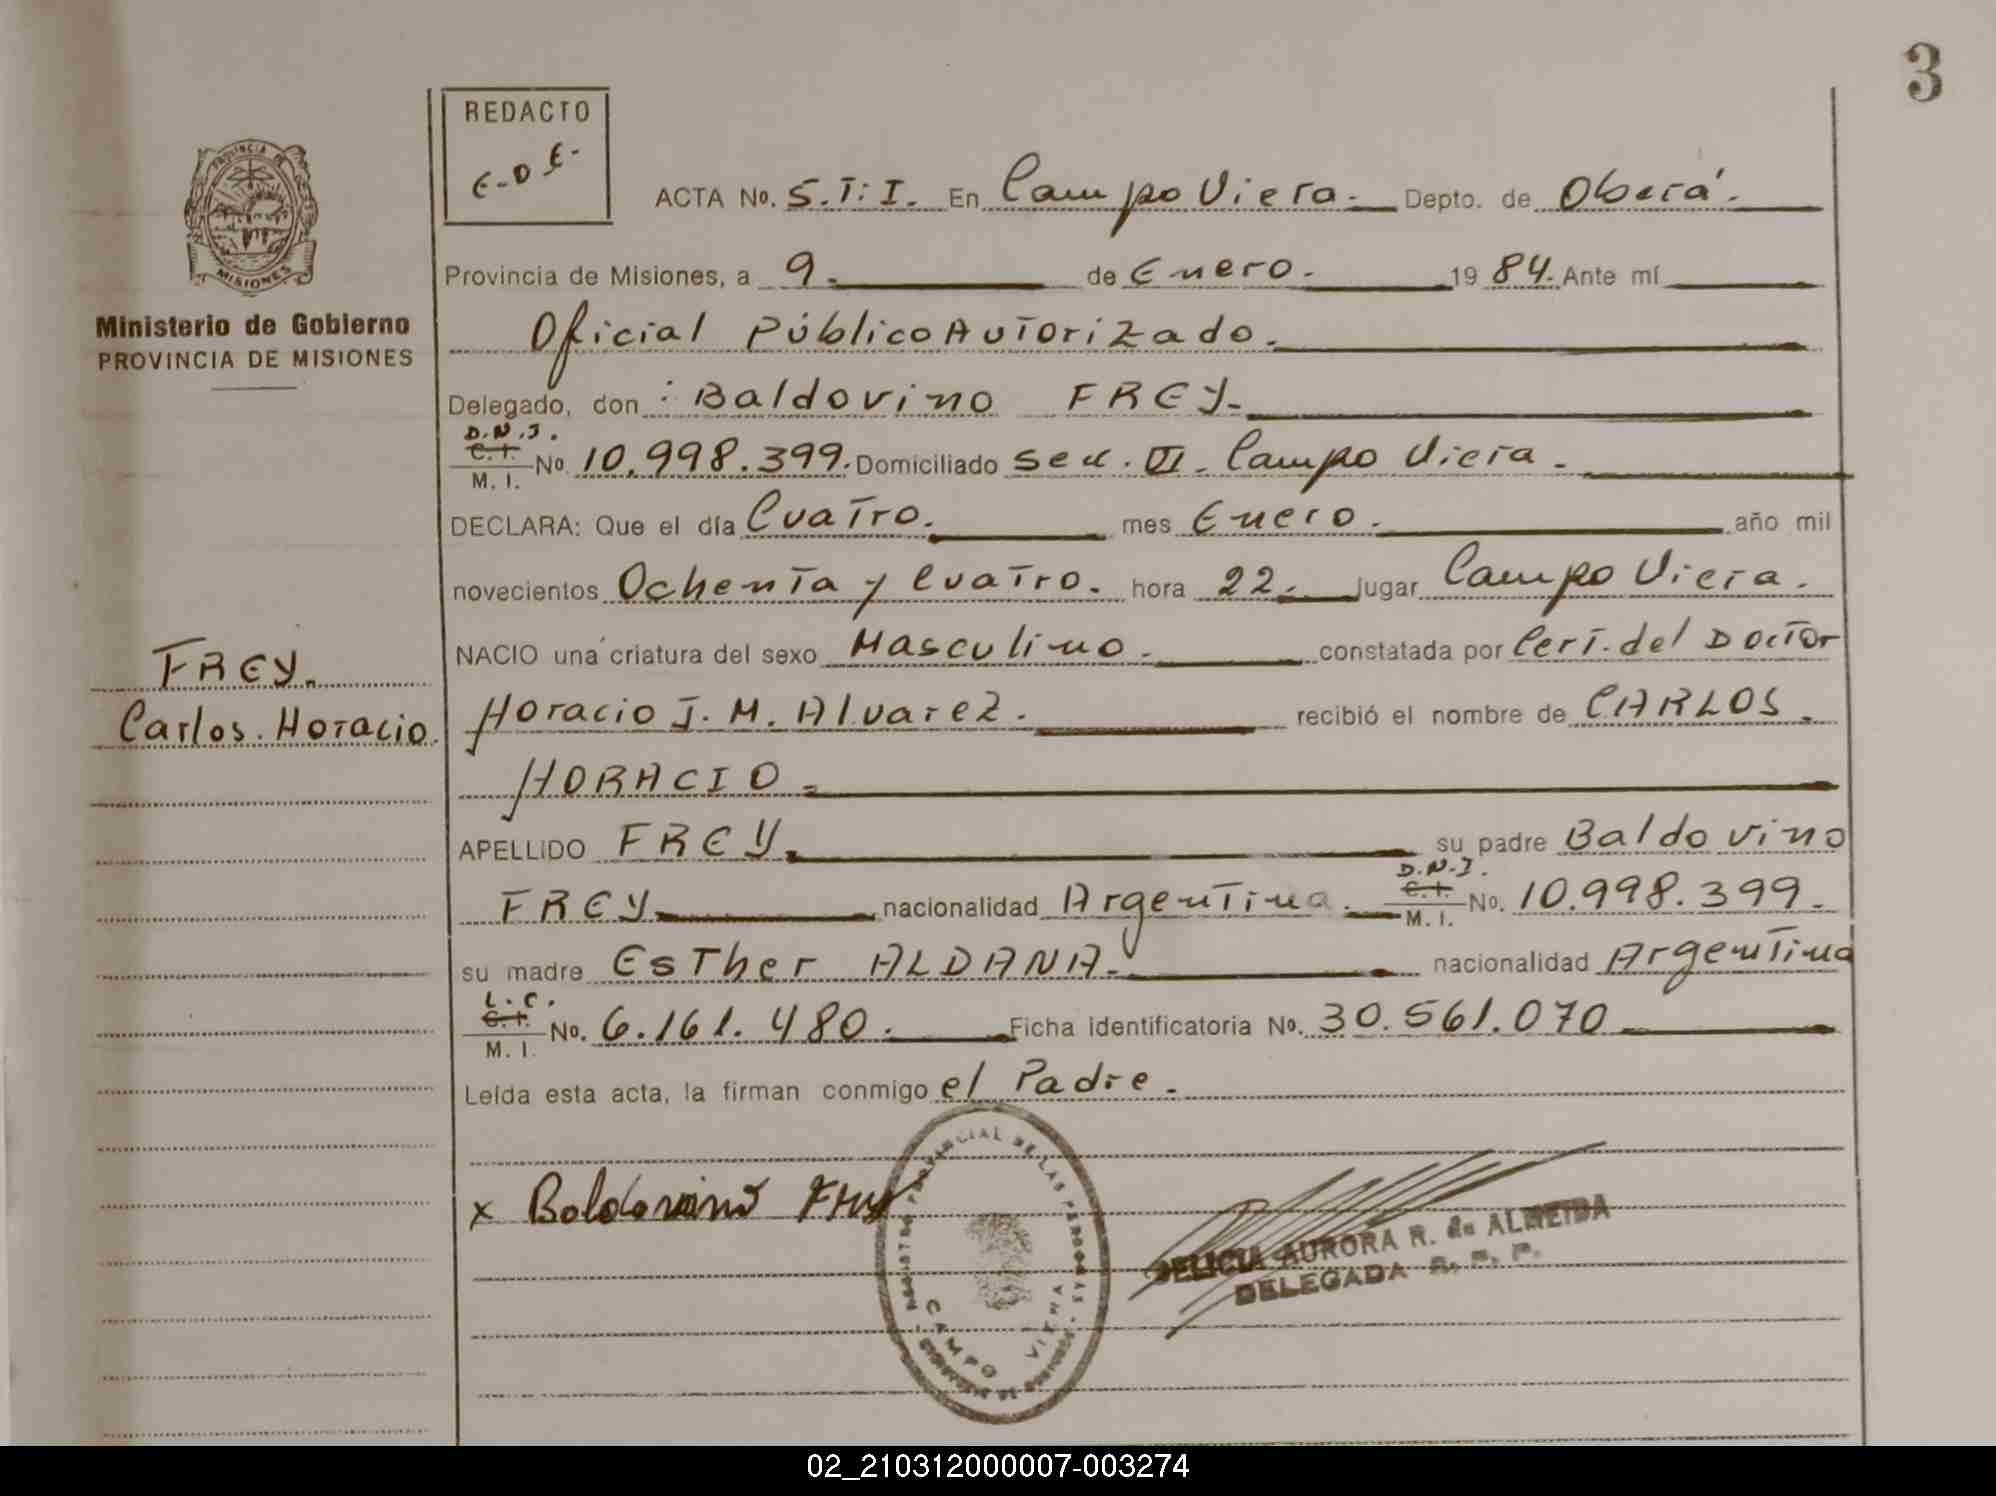 3
REDACTO
E-D E-
PROVINCIA DE
MISIONES
Ministerio de Gobierno
PROVINCIA DE MISIONES
ACTA No. S.T.I. En Campo Viera. Depto. de Oberá.
Provincia de Misiones, a 9. de Enero. 19 84. Ante mí
Oficial Público Autorizado.
Delegado, don : Baldovino FREY.
D.N.I.
C.I.
M. I. No. 10.998.399. Domiciliado Secc. VI. Campo Viera.
DECLARA: Que el día Cuatro. mes Enero. año mil
novecientos Ochenta y Cuatro. hora 22. lugar Campo Viera.
NACIO una criatura del sexo Masculino. constatada por Cert. del Doctor
Horacio J. M. Alvarez. recibió el nombre de CARLOS.
HORACIO
APELLIDO FREY su padre Baldovino
D.N.I.
C.I.
FREY nacionalidad Argentina. M. I. No. 10.998.399.
su madre Esther ALDANA. nacionalidad Argentina
L.C.
C.I.
M. I. No. 6.161.480. Ficha identificatoria No. 30.561.070
Leída esta acta, la firman conmigo el Padre.
FREY.
Carlos. Horacio.
x Boldovino Frey
REGISTRO PROVINCIAL DE LAS PERSONAS
CAMPO VIERA
DELICIA AURORA R. de ALMEIDA
DELEGADA R. P. P.
02_210312000007-003274